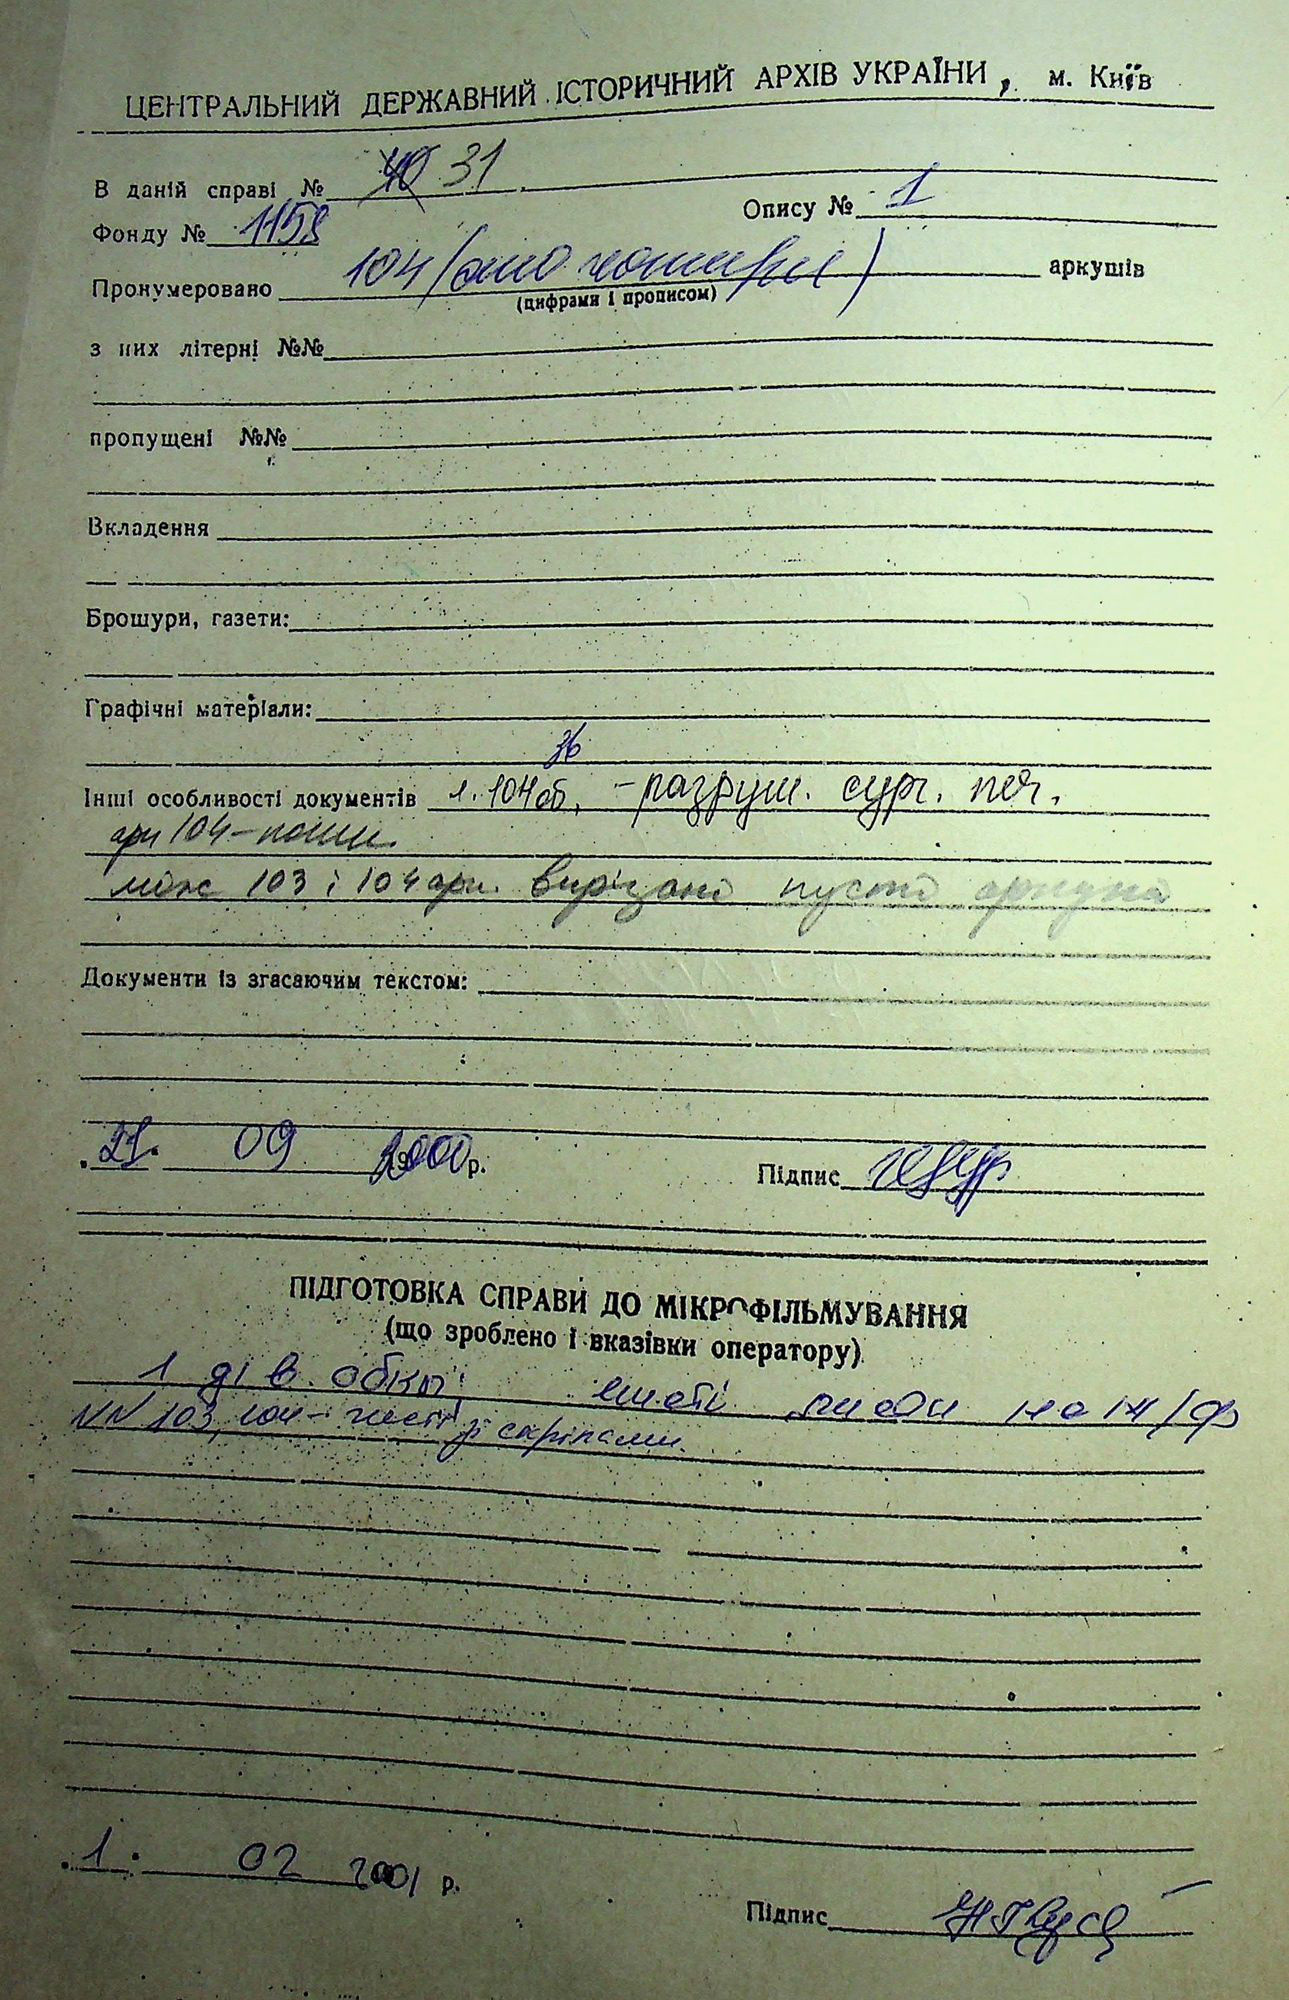 ЦЕНТРАЛЬНИЙ ДЕРЖАВНИЙ ІСТОРИЧНИЙ АРХІВ УКРАЇНИ, м. Київ
В даній справі № 40 31
Опису № 1
Фонду № 1158
Пронумеровано 104 (сто чотири) аркушів
(цифрами і прописом)
з них літерні №№
пропущені №№
Вкладення
Брошури, газети:
Графічні матеріали:
Інші особливості документів л. 104 об. - разруш. сург. печ.
арк 104 - пошк.
між 103 і 104 арк. вирізано пусто аркуша
Документи із згасаючим текстом:
21. 09 2000 р.
Підпис
ПІДГОТОВКА СПРАВИ ДО МІКРОФІЛЬМУВАННЯ
(що зроблено і вказівки оператору)
1 ді в обкл
NN 103, 104 - зі скріпами.
1. 02 2001 р.
Підпис